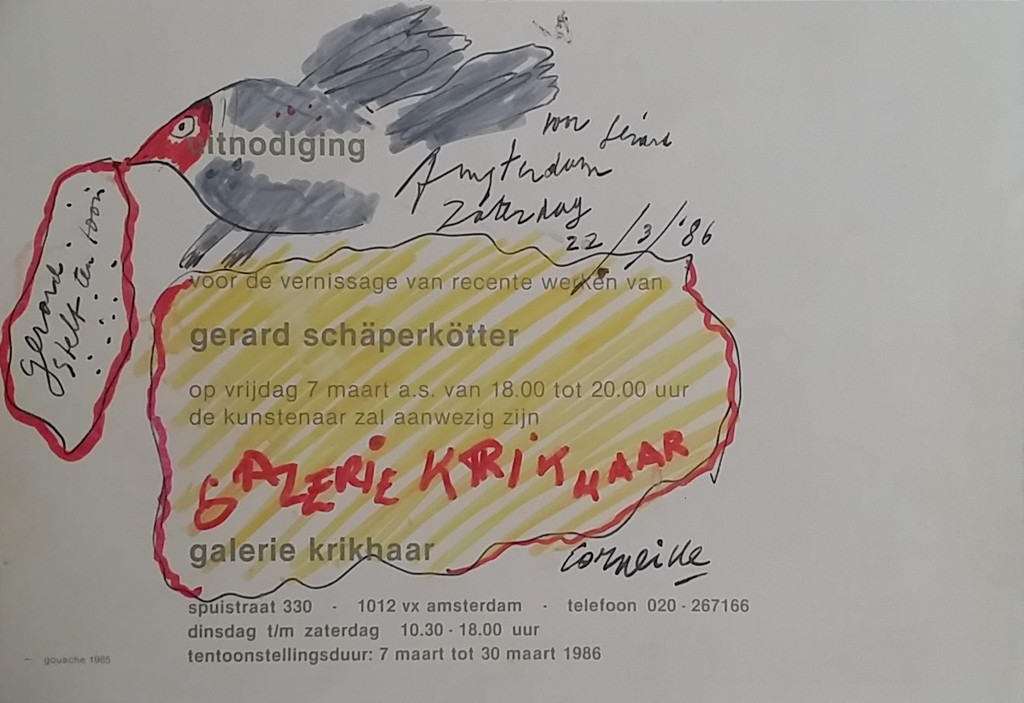 uitnodiging
voor Gérard
Amsterdam
Zaterdag
22/3/'86
Gerard
stelt ten toon
voor de vernissage van recente werken van
gerard schäperkötter
op vrijdag 7 maart a.s. van 18.00 tot 20.00 uur
de kunstenaar zal aanwezig zijn
GALERIE KRIKHAAR
galerie krikhaar
Corneille
spuistraat 330 · 1012 vx amsterdam · telefoon 020 - 267166
dinsdag t/m zaterdag 10.30 - 18.00 uur
tentoonstellingsduur: 7 maart tot 30 maart 1986
— gouache 1985